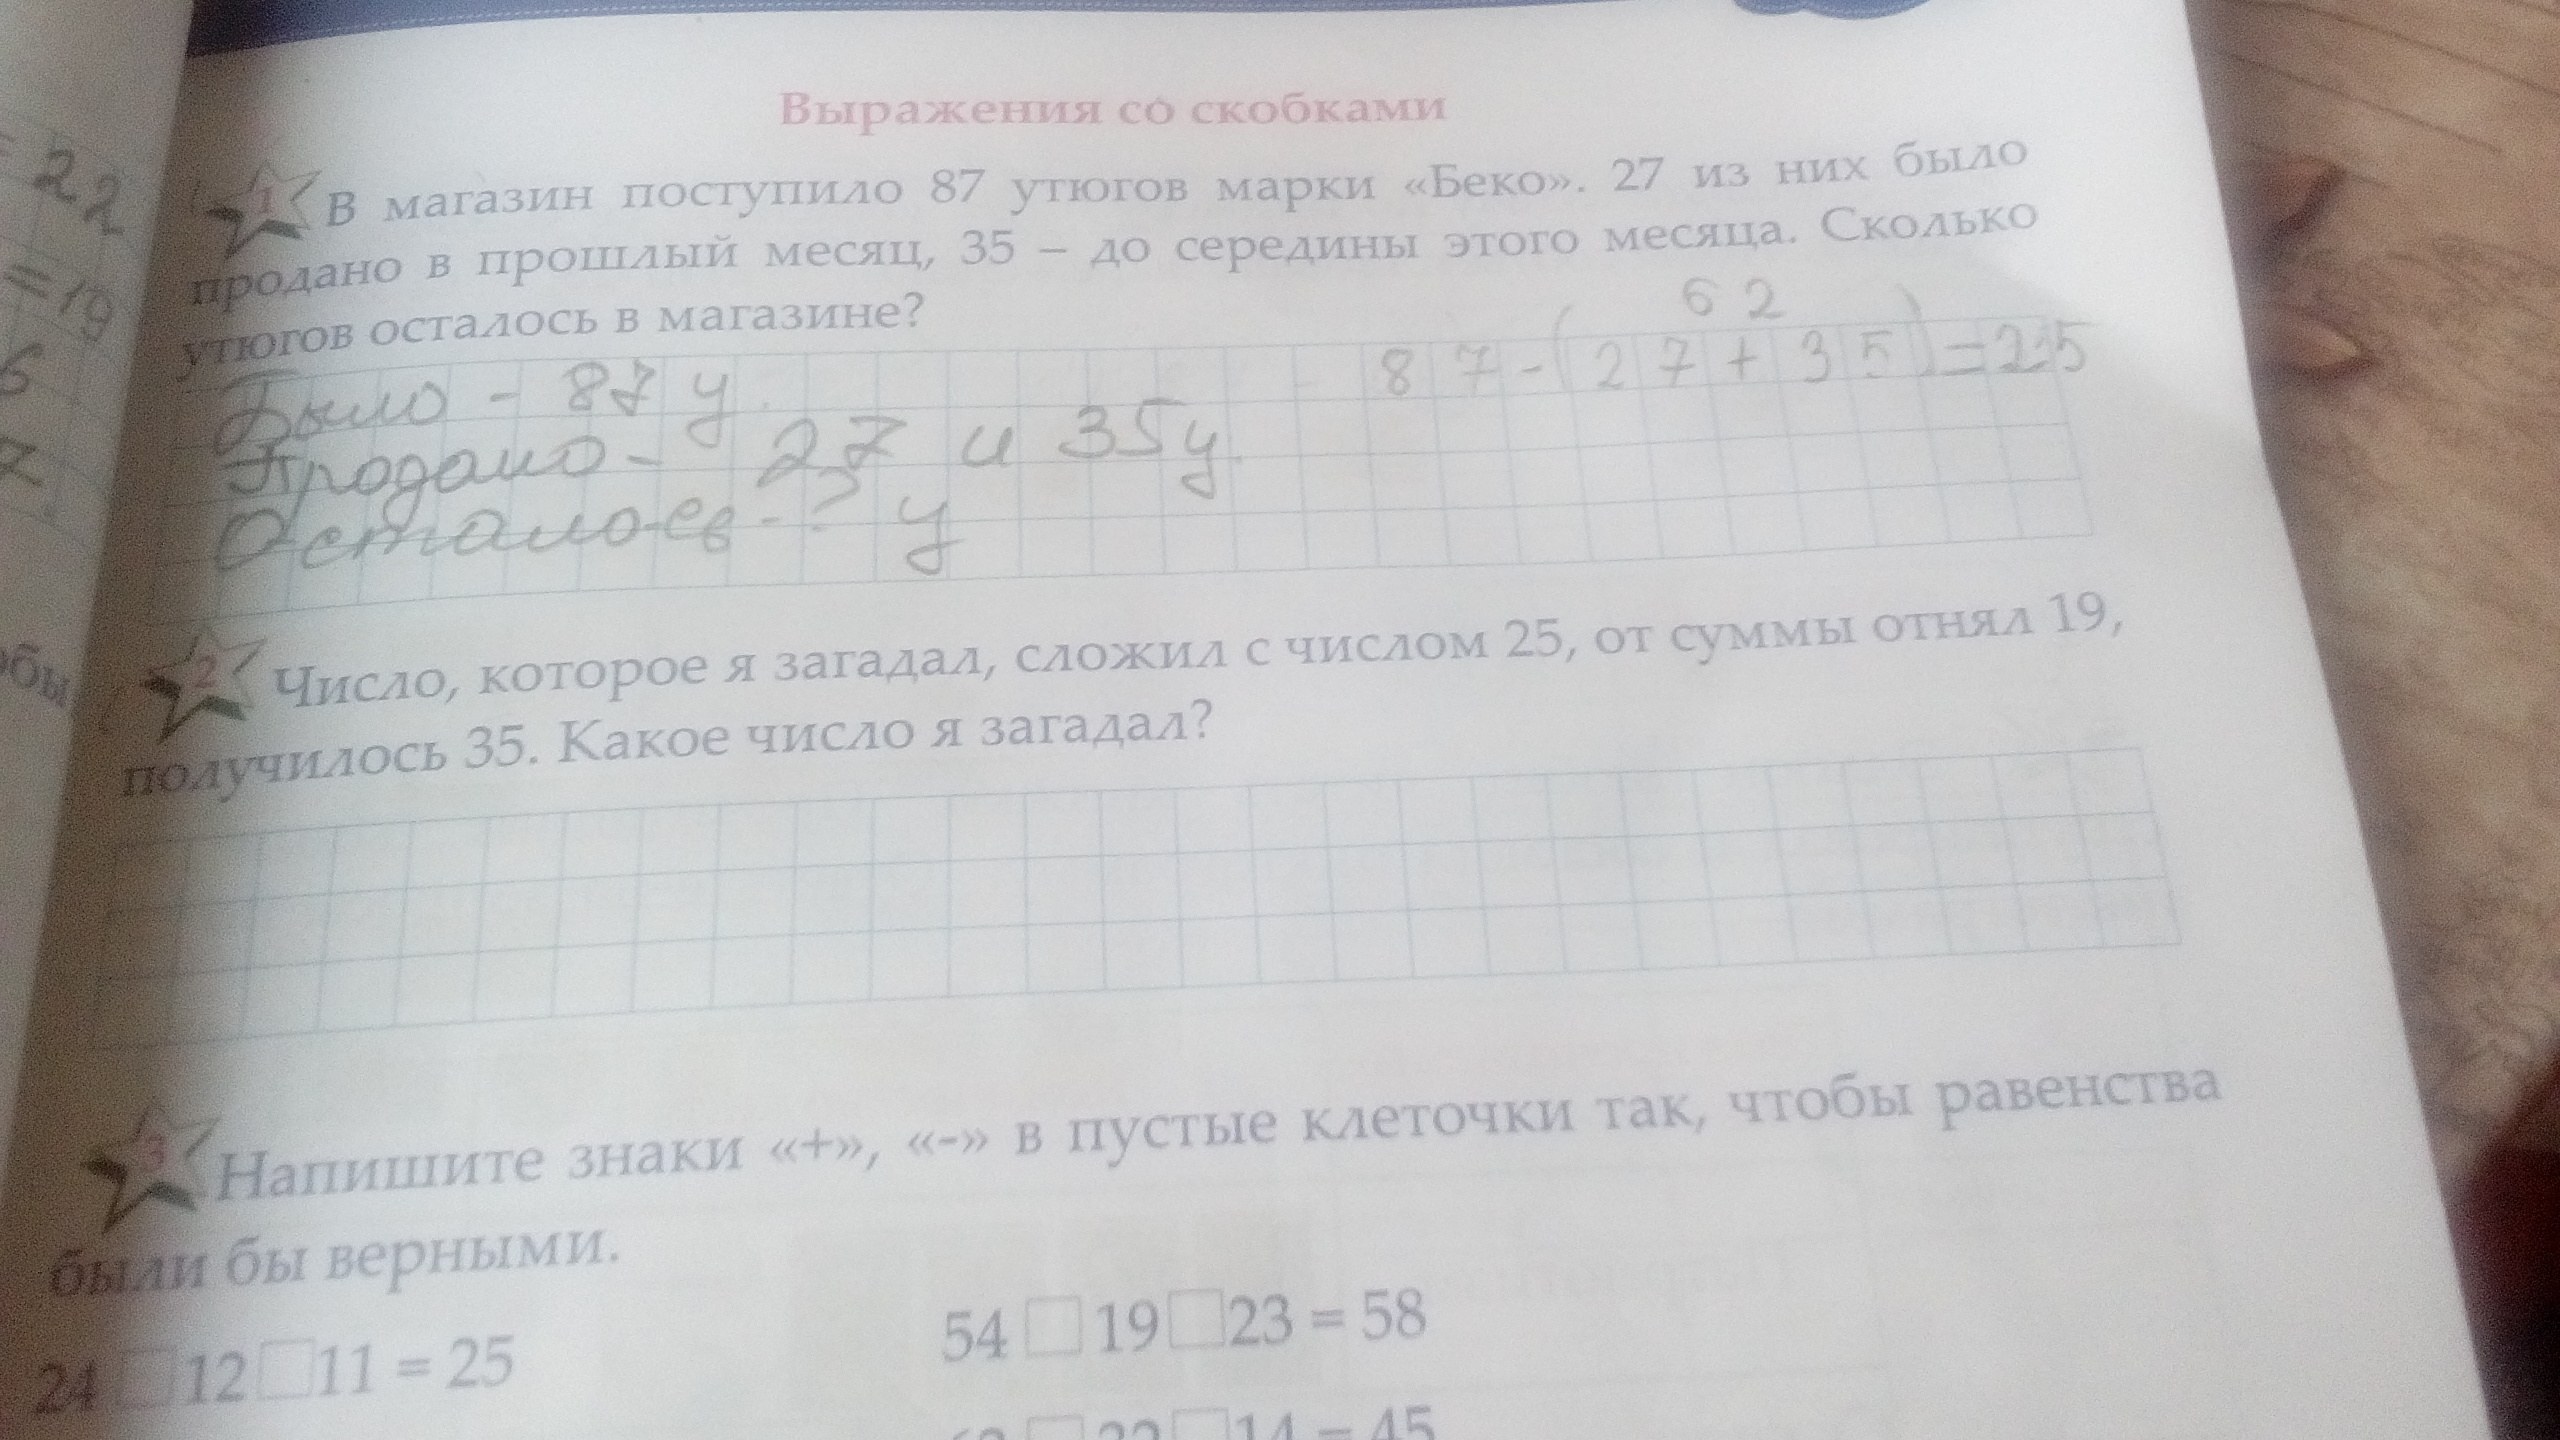 22
= 19
6
7
обы
Выражения со скобками
1 В магазин поступило 87 утюгов марки «Беко». 27 из них было
продано в прошлый месяц, 35 – до середины этого месяца. Сколько
утюгов осталось в магазине?
62
87-(27+35)=25
Было - 87 у
Продано - 27 и 35у.
Осталось - ? у
2 Число, которое я загадал, сложил с числом 25, от суммы отнял 19,
получилось 35. Какое число я загадал?
3 Напишите знаки «+», «-» в пустые клеточки так, чтобы равенства
были бы верными.
24 □ 12 □ 11 = 25
54 □ 19 □ 23 = 58
□ □ 14 = 45